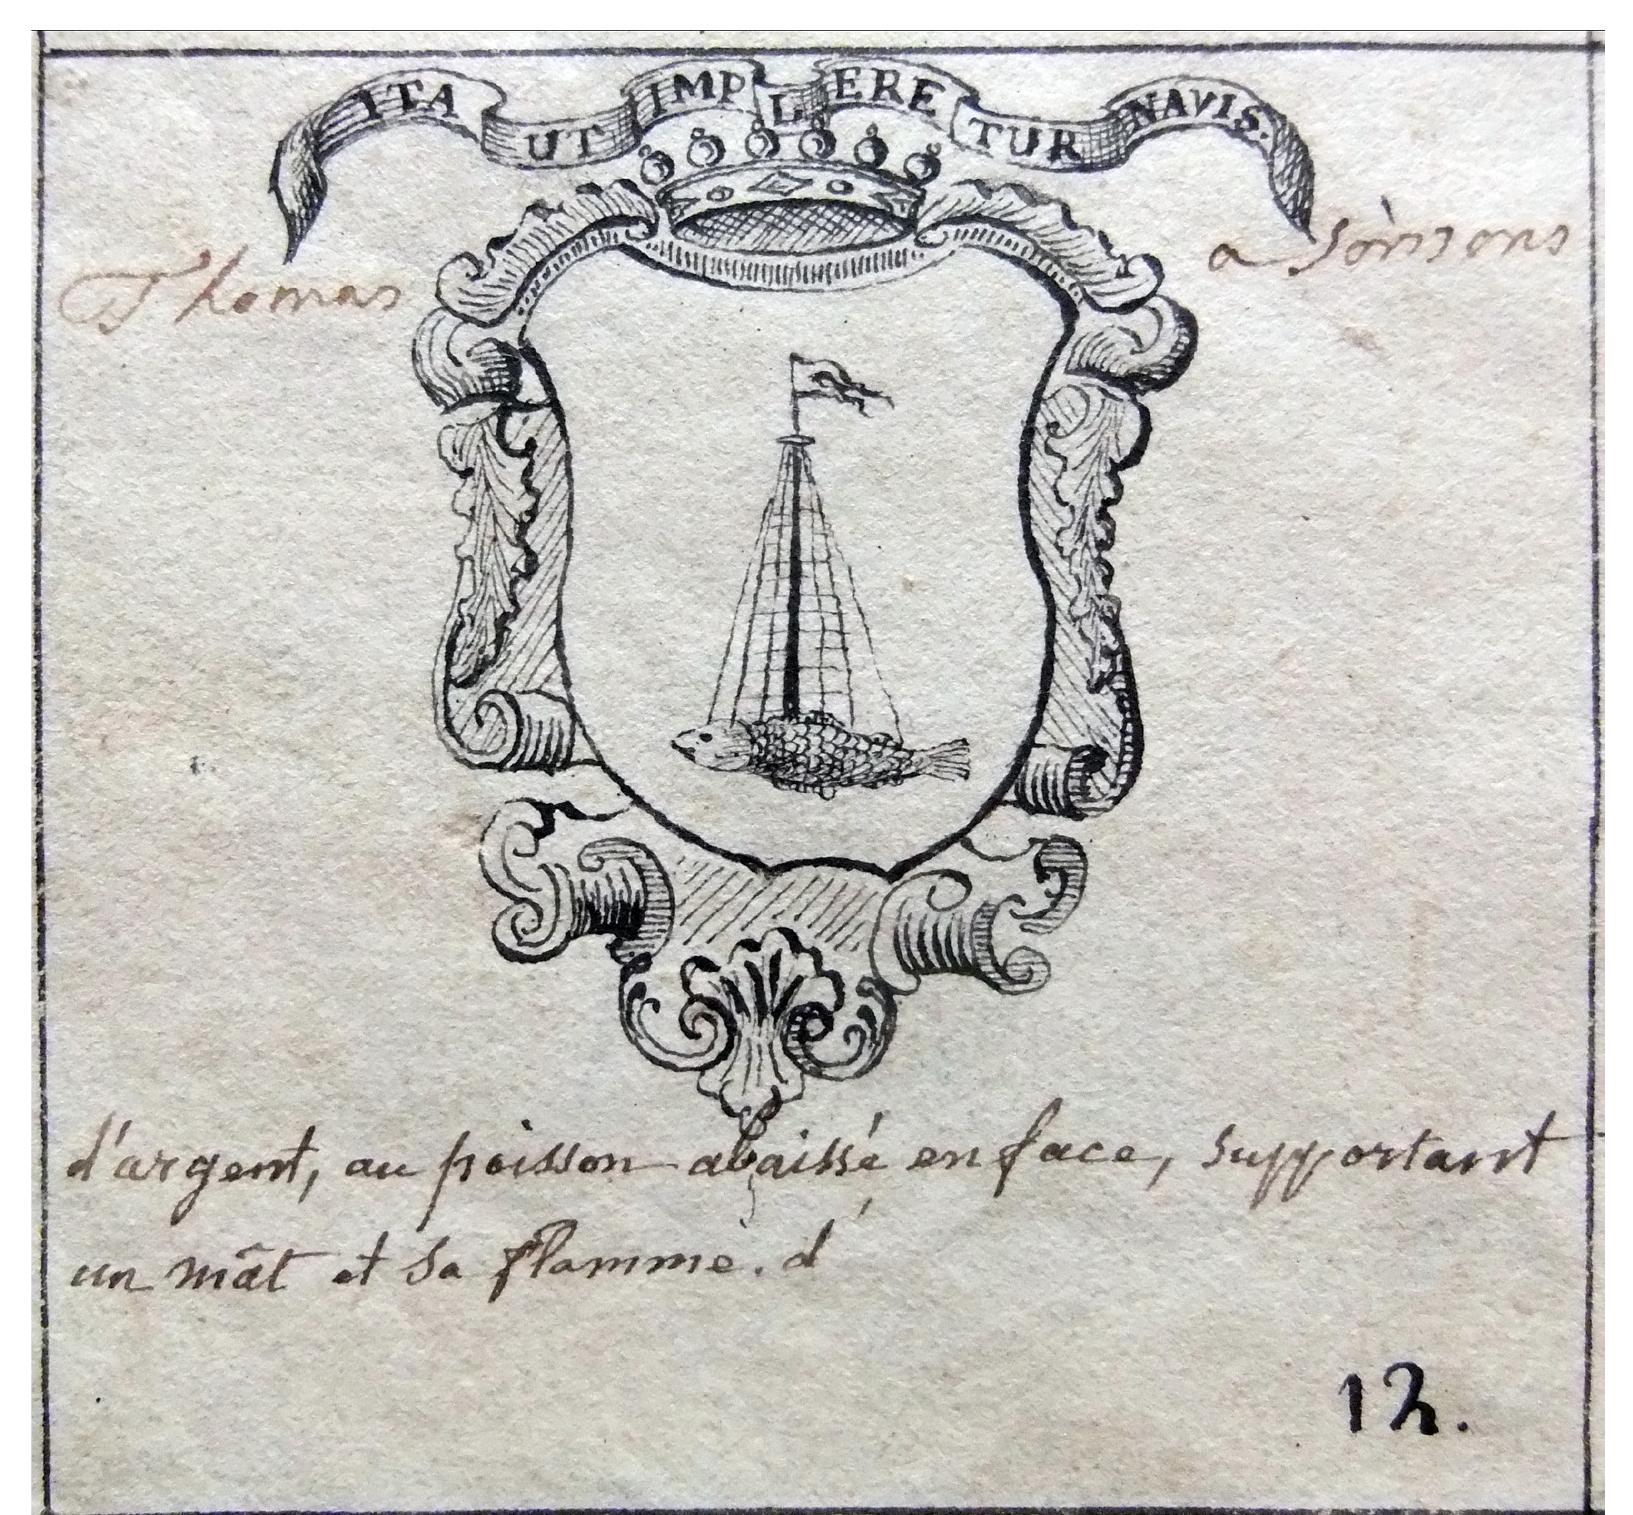 ITA UT IMPLERETUR NAVIS.
Thomas a soissons
d'argent, au poisson abaissé en face, supportant
un mât et sa flamme. d'
12.